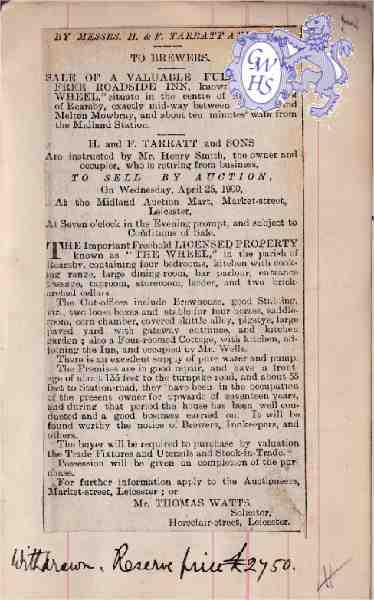 BY MESSRS. H. & F. TARRATT A
TO BREWERS.
SALE OF A VALUABLE FUL
FREE ROADSIDE INN, know
WHEEL," situate in the centre of
of Rearsby, exactly mid-way between and
Melton Mowbray, and about ten minutes' walk from
the Midland Station.
GWHS
H. and F. TARRATT and SONS
Are instructed by Mr. Henry Smith, the owner and
occupier, who is retiring from business,
TO SELL BY AUCTION,
On Wednesday, April 25, 1900,
At the Midland Auction Mart, Market-street,
Leicester,
At Seven o'clock in the Evening prompt, and subject to
Conditions of Sale.
THE Important Freehold LICENSED PROPERTY
known as "THE WHEEL," in the parish of
Rearsby, containing four bedrooms, kitchen with cook-
ing range, large dining-room, bar parlour, entrance
passage, taproom, storeroom, larder, and two brick-
arched cellars.
The Out-offices include Brewhouse, good Stabling,
viz., two loose boxes and stable for four horses, saddle-
room, corn chamber, covered skittle alley, pigstye, large
paved yard with gateway entrance, and kitchen
garden; also a Four-roomed Cottage, with kitchen, ad-
joining the Inn, and occupied by Mr. Wells.
There is an excellent supply of pure water and pump.
The Premises are in good repair, and have a front-
age of about 155 feet to the turnpike road, and about 55
feet to Station-road, they have been in the occupation
of the present owner for upwards of seventeen years,
and during that period the house has been well con-
ducted and a good business carried on. It will be
found worthy the notice of Brewers, Innkeepers, and
others.
The buyer will be required to purchase by valuation
the Trade Fixtures and Utensils and Stock-in-Trade.
Possession will be given on completion of the pur-
chase.
For further information apply to the Auctioneers,
Market-street, Leicester; or
Mr. THOMAS WATTS,
Solicitor,
Horsefair-street, Leicester.
Withdrawn. Reserve price £2750.